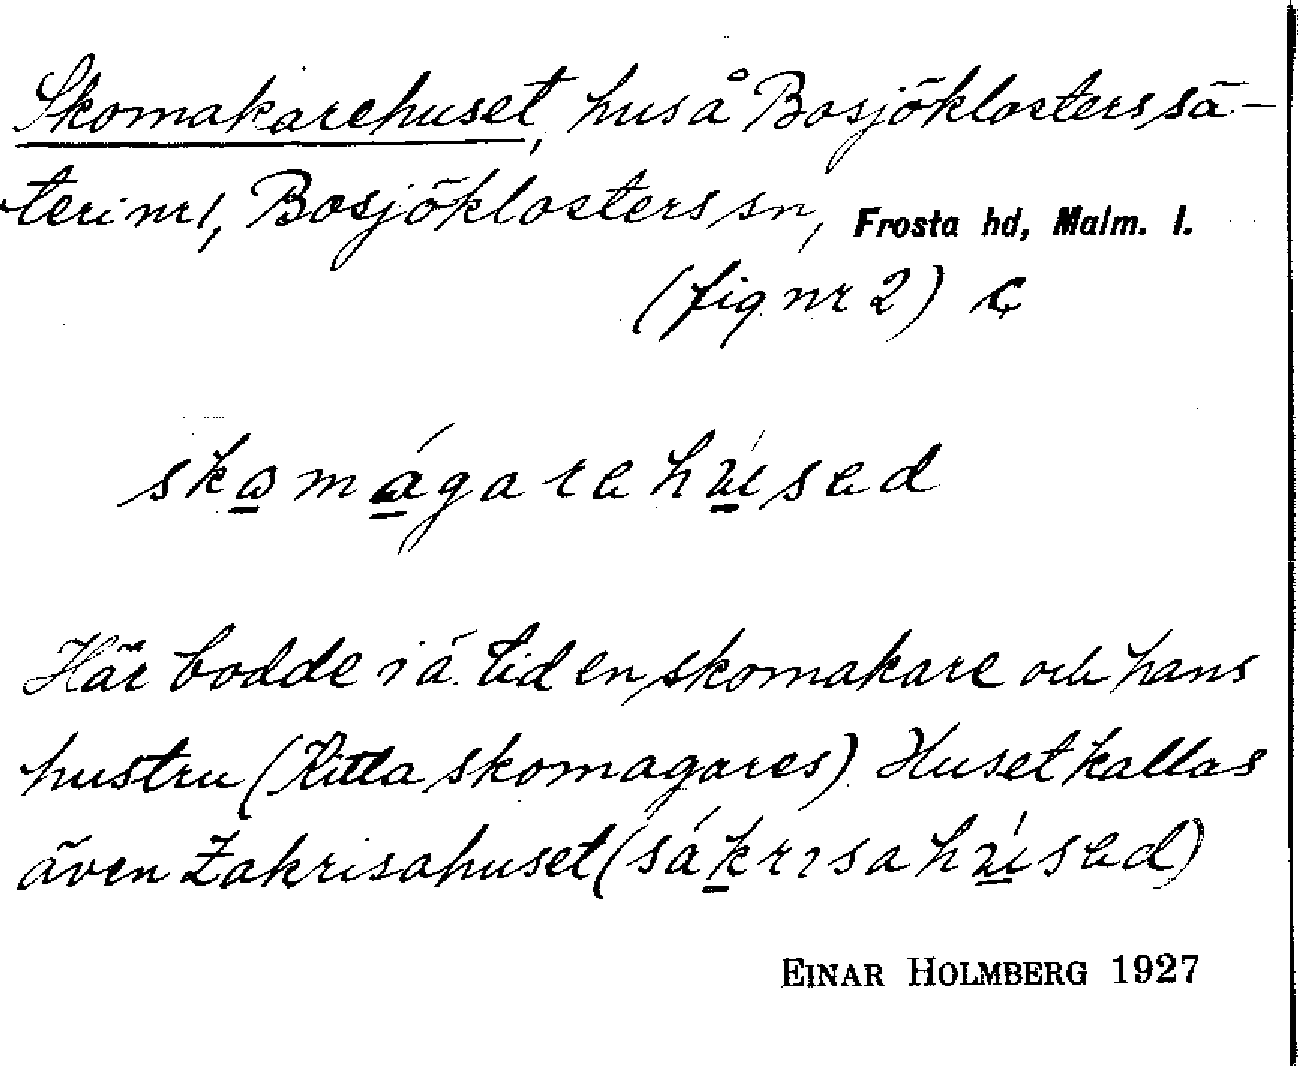 Skomakarehuset, hus å Bosjöklosters sä-
teri nr 1, Bosjöklosters sn, Frosta hd, Malm. l.
(fig nr 2) C
skomágarehúsed
Här bodde i ä. tid en skomakare och hans
hustru (Kitta skomagares). Huset kallas
även Zakrisahuset (sákrisahúsed)
EINAR HOLMBERG 1927